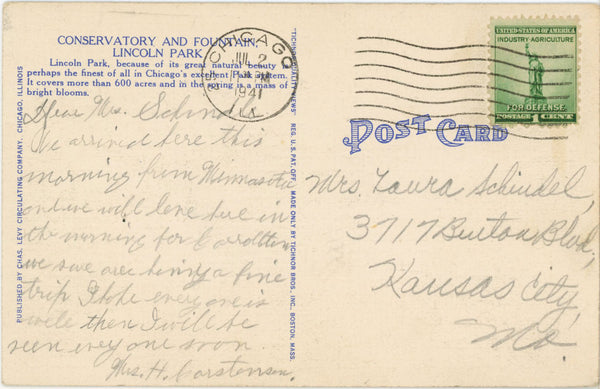 CONSERVATORY AND FOUNTAIN,
LINCOLN PARK
Lincoln Park, because of its great natural beauty is
perhaps the finest of all in Chicago's excellent Park System.
It covers more than 600 acres and in the spring is a mass of
bright blooms.
Dear Mrs. Schindel
We arrived here this
morning from Minnesota
and we will leave here in
the morning for Carrollton
we have been having a fine
trip I hope everyone is
well then I will be
seen every one soon.
Mrs. H. Carstensen.
PUBLISHED BY CHAS. LEVY CIRCULATING COMPANY, CHICAGO, ILLINOIS
TICHNOR QUALITY VIEWS REG. U.S. PAT. OFF. MADE ONLY BY TICHNOR BROS., INC., BOSTON, MASS.
CHICAGO
JUL 2
PM
1941
ILL.
UNITED STATES OF AMERICA
INDUSTRY-AGRICULTURE
FOR DEFENSE
POSTAGE 1 CENT
POST CARD
Mrs. Laura Schindel,
3717 Benton Blvd,
Kansas City,
Mo.